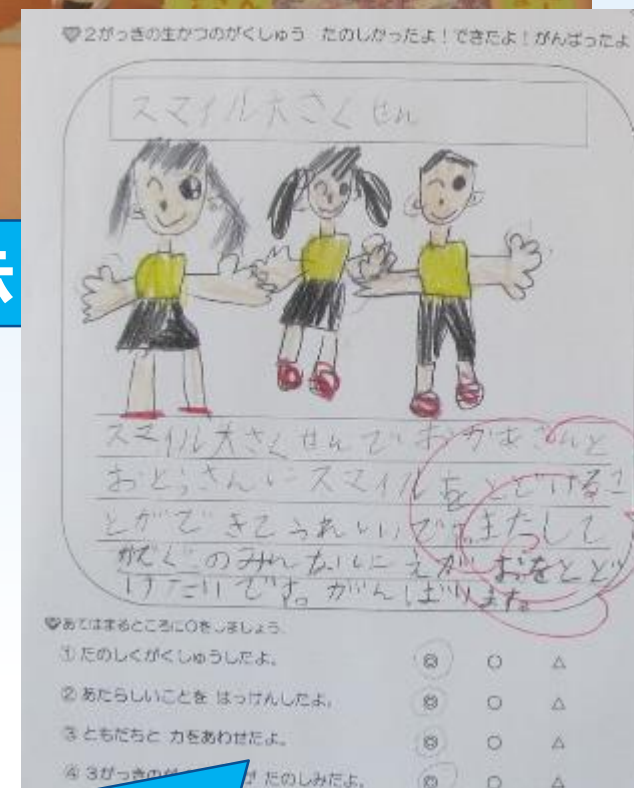 ♡2がっきの生かつのがくしゅう たのしかったよ！できたよ！がんばったよ
スマイル大さくせん
スマイル大さくせんでおかあさんと
おとうさんにスマイルをとどけるこ
とができてうれしいです。またして
かぞくのみんなにえがおをとど
けたいです。がんばります。
♡あてはまるところに○をしましょう。
① たのしくがくしゅうしたよ。 ◎ ○ △
② あたらしいことを はっけんしたよ。 ◎ ○ △
③ ともだちと 力をあわせたよ。 ◎ ○ △
④ 3がっきの たのしみだよ。 ◎ ○ △